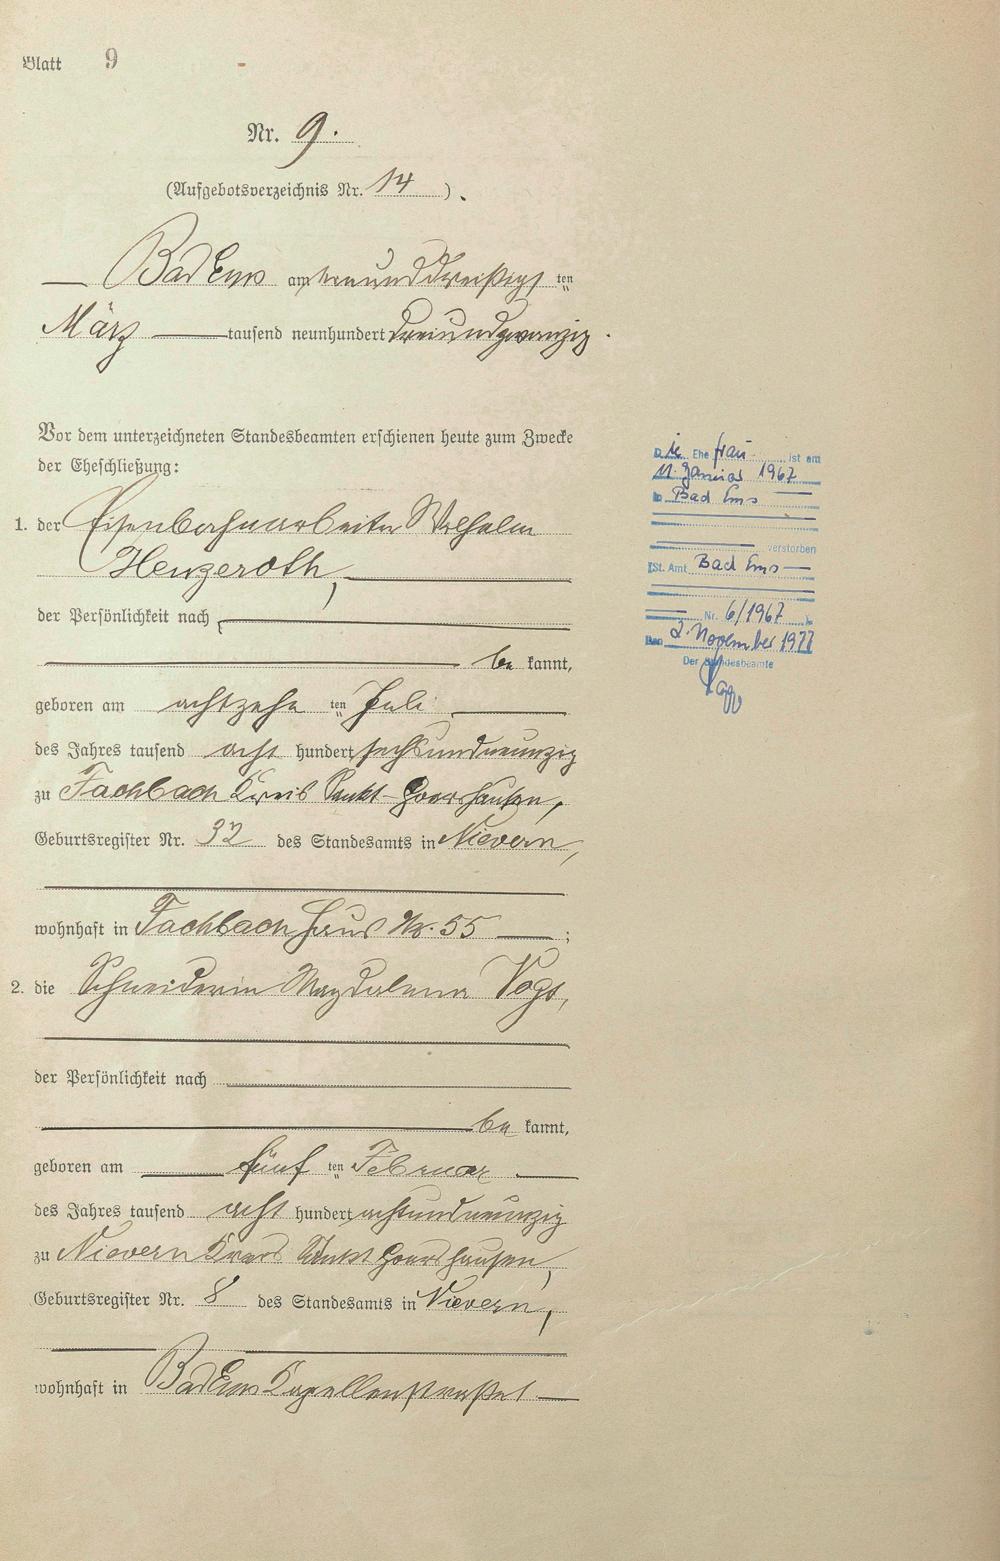 Blatt 9
Nr. 9.
(Aufgebotsverzeichnis Nr. 14).
Bad Ems am einunddreißigsten
März tausend neunhundert dreiundzwanzig.
Vor dem unterzeichneten Standesbeamten erschienen heute zum Zwecke
der Eheschließung:
1. der Eisenbahnarbeiter Wilhelm
Henzeroth,
der Persönlichkeit nach
be kannt,
geboren am achtzehn ten Juli
des Jahres tausend acht hundert sechsundneunzig
zu Fachbach Kreis Sankt Goarshausen,
Geburtsregister Nr. 32 des Standesamts in Nievern,
wohnhaft in Fachbach Haus Nr. 55;
2. die Schneiderin Magdalena
der Persönlichkeit nach
be kannt,
geboren am fünf ten Februar
des Jahres tausend acht hundert achtundneunzig
zu Nievern Kreis Sankt Goarshausen,
Geburtsregister Nr. 8 des Standesamts in Nievern,
wohnhaft in Bad Ems Kapellenstraße 1
Die Ehefrau ist am
11. Januar 1967
in Bad Ems
verstorben
St. Amt Bad Ems
Nr. 6/1967
Den 2. November 1977
Der Standesbeamte